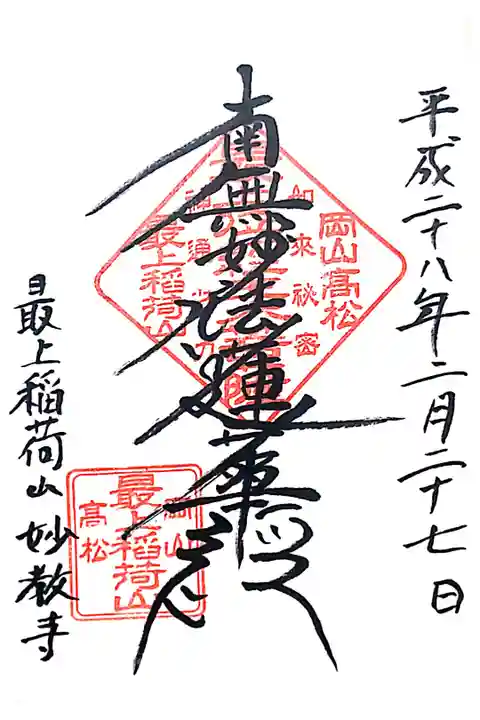 平成二十八年二月二十七日
南無妙法蓮華経
最上稲荷山妙教寺
岡山高松
如来秘密
神通之力
最上稲荷山
岡山
最上稲荷山
高松